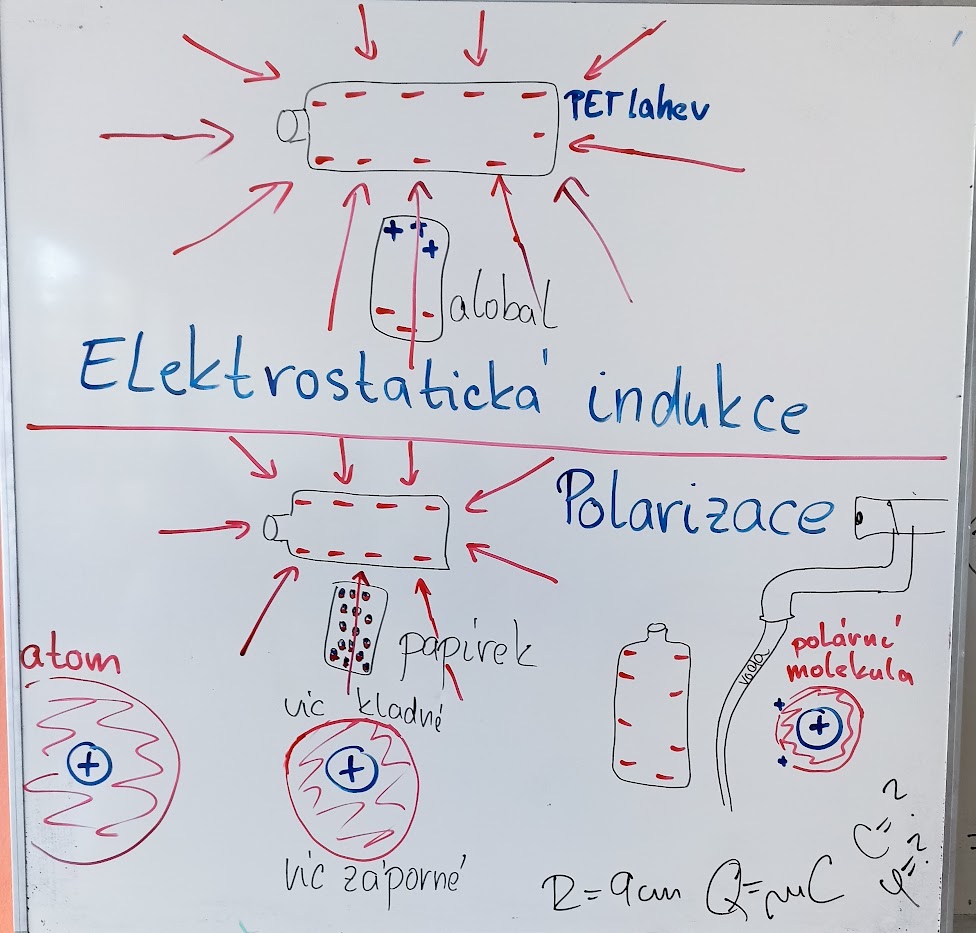 PET lahev
alobal
Elektrostatická indukce
Polarizace
papírek
atom
víc kladné
víc záporné
voda
polární
molekula
R=9cm Q=μC
C=?
φ=?